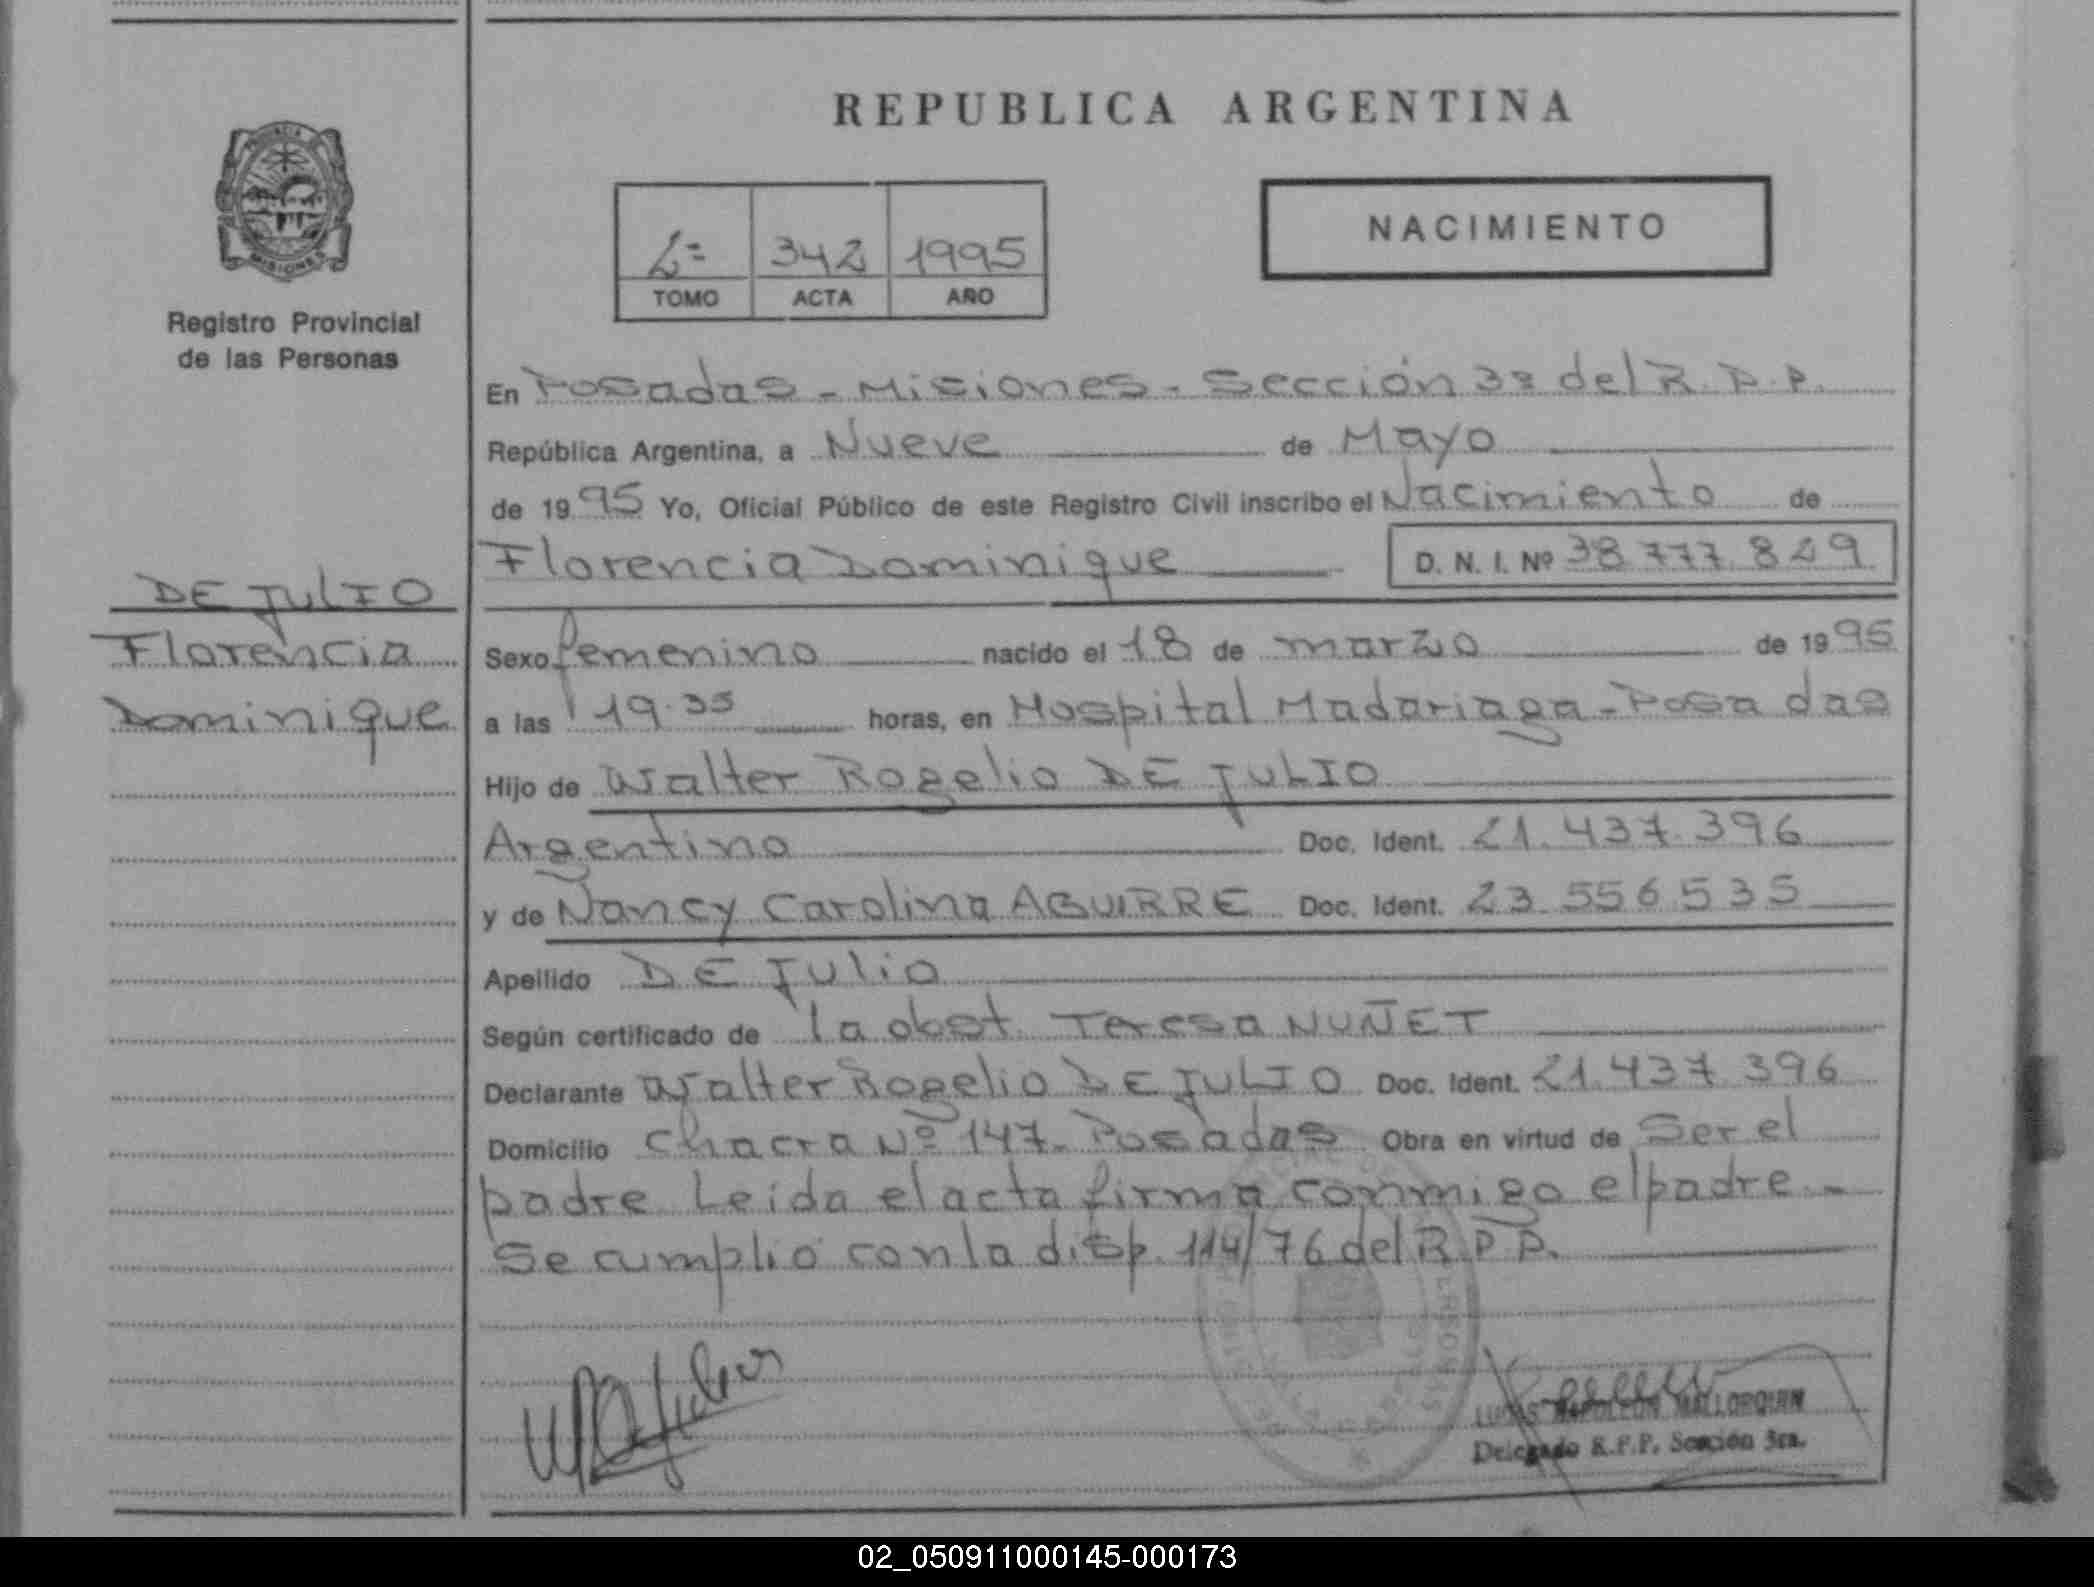 REPUBLICA ARGENTINA
PROVINCIA
MISIONES
Registro Provincial
de las Personas
2º 342 1995
TOMO ACTA AÑO
NACIMIENTO
En Posadas - Misiones - Sección 3ª del R. P. P.
República Argentina, a Nueve de Mayo
de 1995 Yo, Oficial Público de este Registro Civil inscribo el Nacimiento de
Florencia Dominique D. N. I. Nº 38 777 829
DE JULIO
Florencia
Dominique
Sexo femenino nacido el 18 de marzo de 1995
a las 19.35 horas, en Hospital Madariaga - Posadas
Hijo de Walter Rogelio DE JULIO
Argentino Doc. Ident. 21.437.396
y de Nancy Carolina AGUIRRE Doc. Ident. 23 556 535
Apellido DE JULIO
Según certificado de la obst. Teresa NUÑET
Declarante Walter Rogelio DE JULIO Doc. Ident. 21.437 396
Domicilio Chacra Nº 147 - Posadas Obra en virtud de Ser el
padre Leida el acta firma conmigo el padre -
Se cumplio con la disp. 114/76 del R.P.P.
LUCAS NAPOLEON MALLORQUIN
Delegado R.P.P. Sección 3ra.
02_050911000145-000173